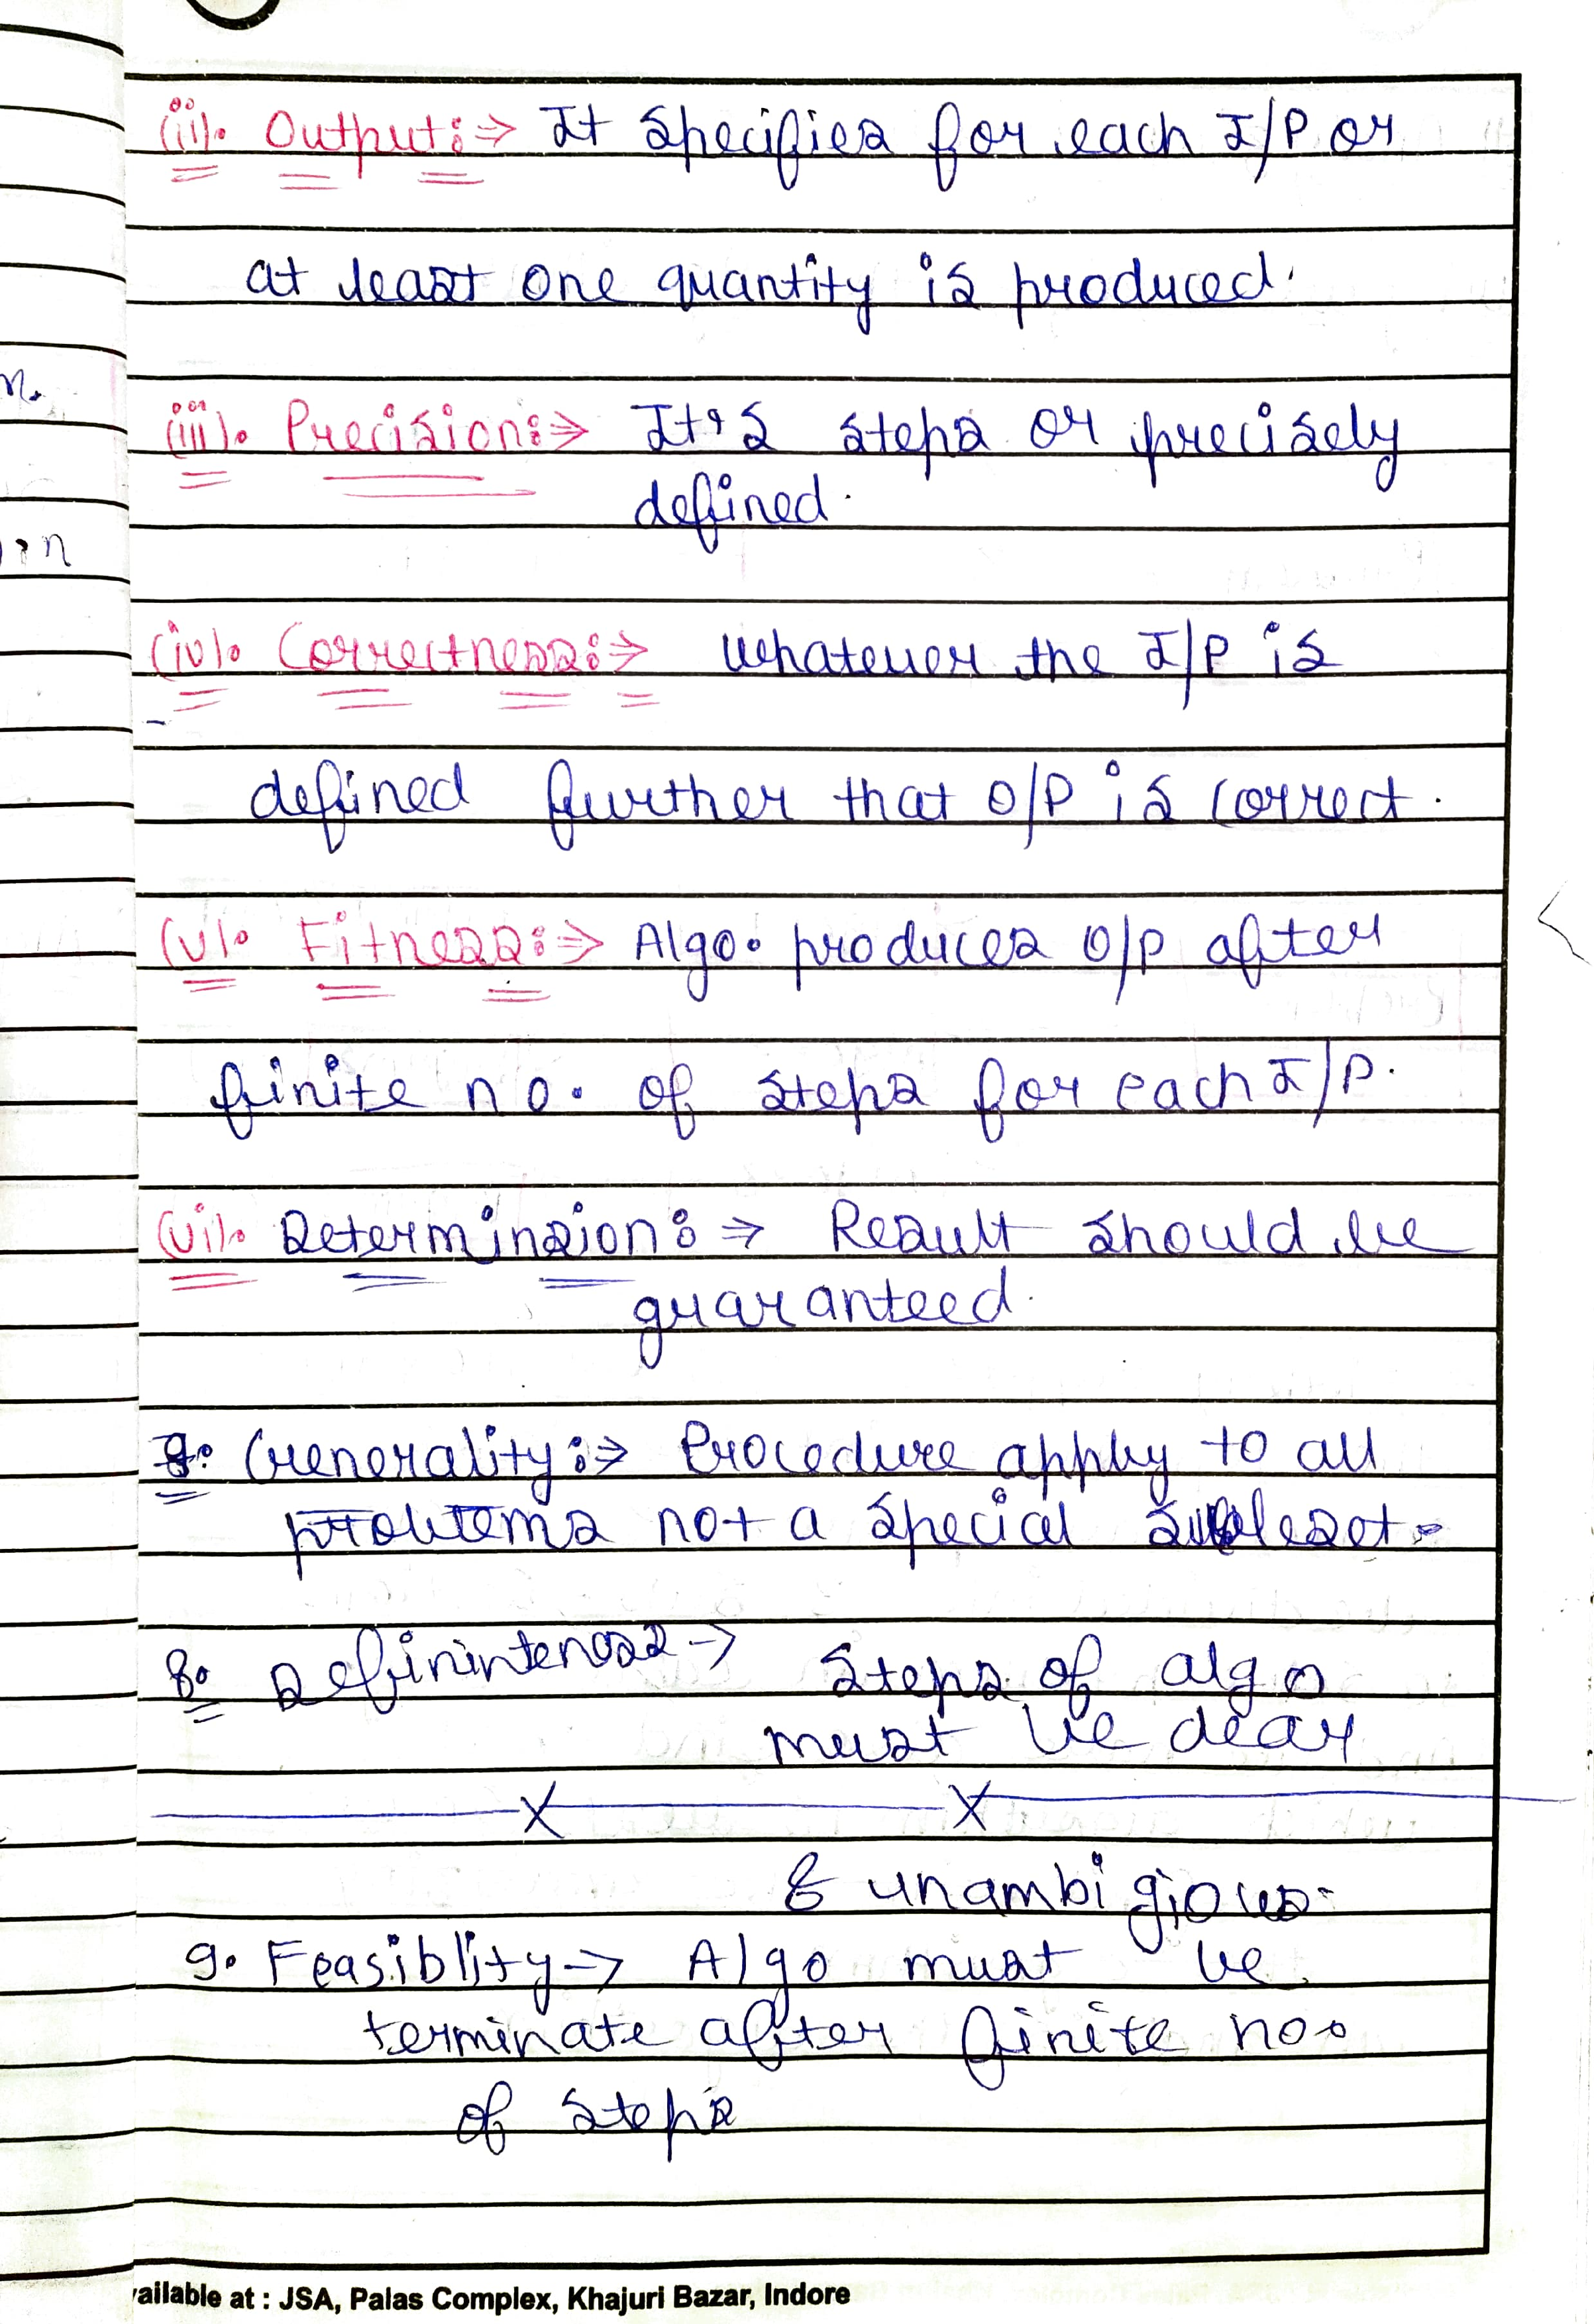 (ii). Output:⇒ It specifies for each I/P or
at least one quantity is produced.
n.
(iii). Precision:⇒ It's steps or precisely
defined.
n
(iv). Correctness:⇒ Whatever the I/P is
defined further that O/P is correct.
(v). Fitness:⇒ Algo. produces O/P after
finite no. of steps for each I/P.
(vi). Determinsion:⇒ Result should be
guaranteed.
7. Generality:⇒ Procedure apply to all
problems not a special subset.
8. Defininteness→ Steps of algo
must be clear
X X
& unambigious.
9. Feasiblity→ Algo must be
terminate after finite no.
of steps
ailable at : JSA, Palas Complex, Khajuri Bazar, Indore